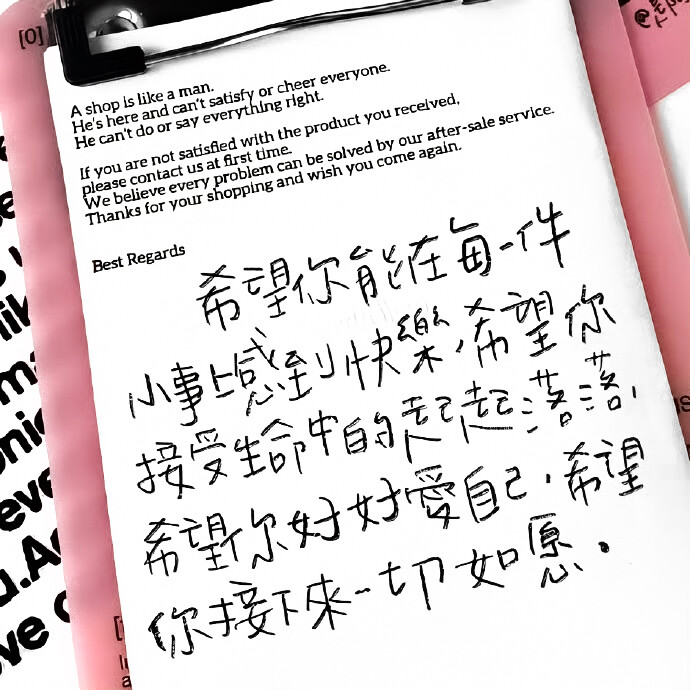 [0]
A shop is like a man.
He's here and can't satisfy or cheer everyone.
He can't do or say everything right.
If you are not satisfied with the product you received,
please contact us at first time.
We believe every problem can be solved by our after-sale service.
Thanks for your shopping and wish you come again.
Best Regards
希望你能在每一件
小事上感到快樂,希望你
接受生命中的起起落落,
希望你好好愛自己,希望
你接下來一切如愿。